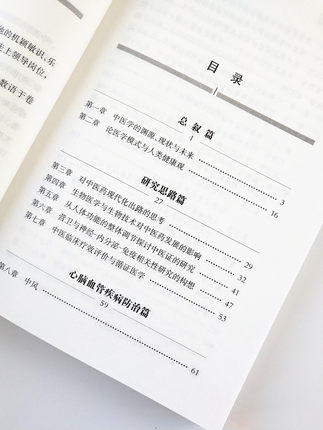 他的机颖敏识、乐
走上领导岗位,
数语于卷
目 录
总叙篇
1
第一章 中医学的渊源、现状与未来 3
第二章 论医学模式与人类健康观 16
研究思路篇
27
第三章 对中医药现代化出路的思考 29
第四章 生物医学与生物技术对中医药发展的影响 32
第五章 从人体功能的整体调节探讨中医证的研究 41
第六章 营卫与神经-内分泌-免疫相关性研究的构想 47
第七章 中医临床疗效评价与循证医学 53
心脑血管疾病防治篇
59
第八章 中风 61